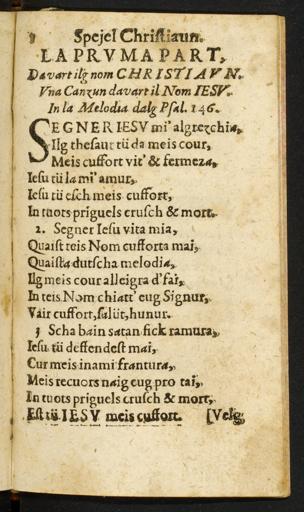 9 Spejel Christiaun.
LA PRVMA PART,
Davart ilg nom CHRISTIAVN.
Vna Canzun davart il Nom IESV.
In la Melodia dalg Psal. 146.
SEGNER IESV mi' algrezchia,
Ilg thesaur tü da meis cour,
Meis cuffort vit' & fermeza,
Iesu tü la mi' amur,
Iesu tü esch meis cuffort,
In tuots priguels crusch & mort.
2. Segner Iesu vita mia,
Quaist teis Nom cufforta mai,
Quaista dutscha melodia,
Ilg meis cour alleigra d'fai,
In teis Nom chiatt' eug Signur,
Vair cuffort, salüt, hunur.
3 Scha bain satan fick ramura,
Iesu tü deffendest mai,
Cur meis inami frantura,
Meis recuors naig eug pro tai,
In tuots priguels crusch & mort,
Est tü IESV meis cuffort. [Velg,